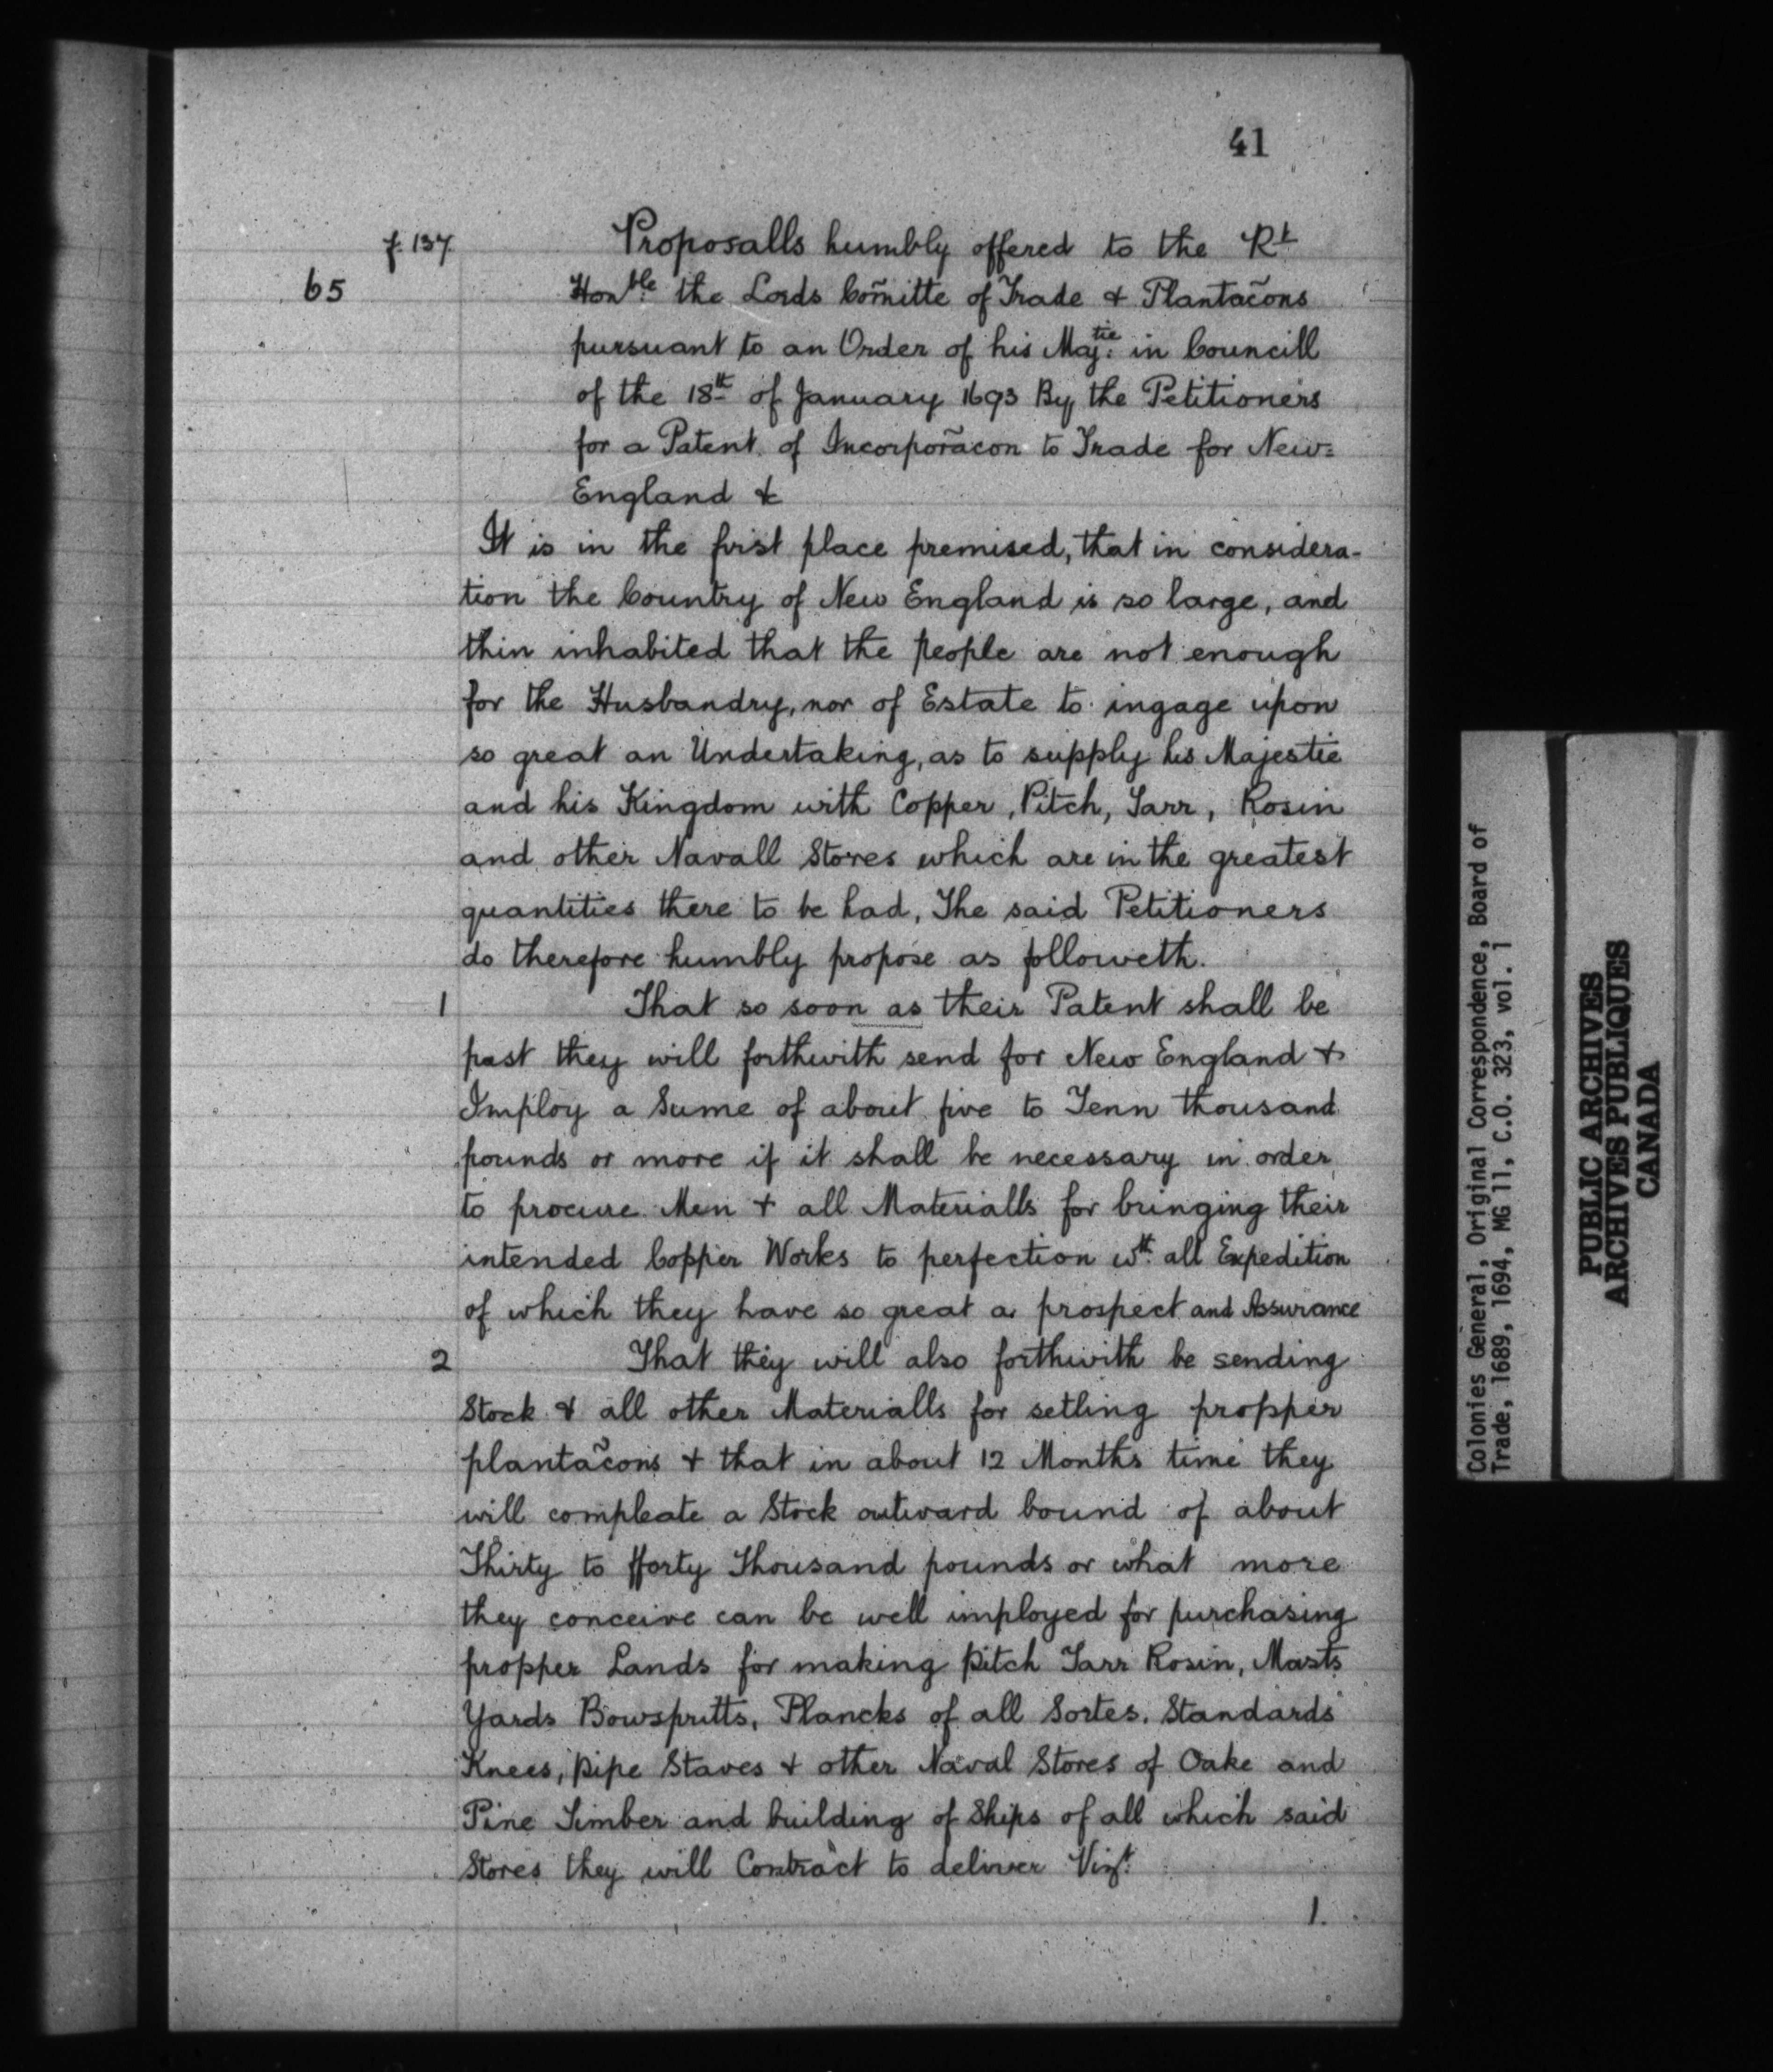 41
f. 137
65
Proposalls humbly offered to the Rt
Honble. the Lords Com̃itte of Trade & Plantac̃ons
pursuant to an Order of his Majtie. in Councill
of the 18th of January 1693 By the Petitioners
for a Patent of Incorporac̃on to Trade for New=
England &c
It is in the first place premised, that in considera-
tion the Country of New England is so large, and
thin inhabited that the people are not enough
for the Husbandry, nor of Estate to ingage upon
so great an Undertaking, as to supply his Majestie
and his Kingdom with Copper, Pitch, Tarr, Rosin
and other Navall Stores which are in the greatest
quantities there to be had, The said Petitioners
do therefore humbly propose as followeth.
1 That so soon as their Patent shall be
past they will forthwith send for New England &
Imploy a Sume of about five to Tenn thousand
pounds or more if it shall be necessary in order
to procure Men & all Materialls for bringing their
intended Copper Works to perfection wth. all Expedition
of which they have so great a prospect and Assurance
2 That they will also forthwith be sending
Stock & all other Materialls for setling propper
plantac̃ons & that in about 12 Months time they
will compleate a Stock outward bound of about
Thirty to fforty Thousand pounds or what more
they conceive can be well imployed for purchasing
propper Lands for making pitch Tarr Rosin, Masts
Yards Bowspritts, Plancks of all Sortes. Standards
Knees, pipe Staves & other Naval Stores of Oake and
Pine Timber and building of Ships of all which said
Stores they will Contract to deliver Vizt.
1.
Colonies General, Original Correspondence, Board of
Trade, 1689, 1694, MG 11, C.O. 323, vol. 1
PUBLIC ARCHIVES
ARCHIVES PUBLIQUES
CANADA